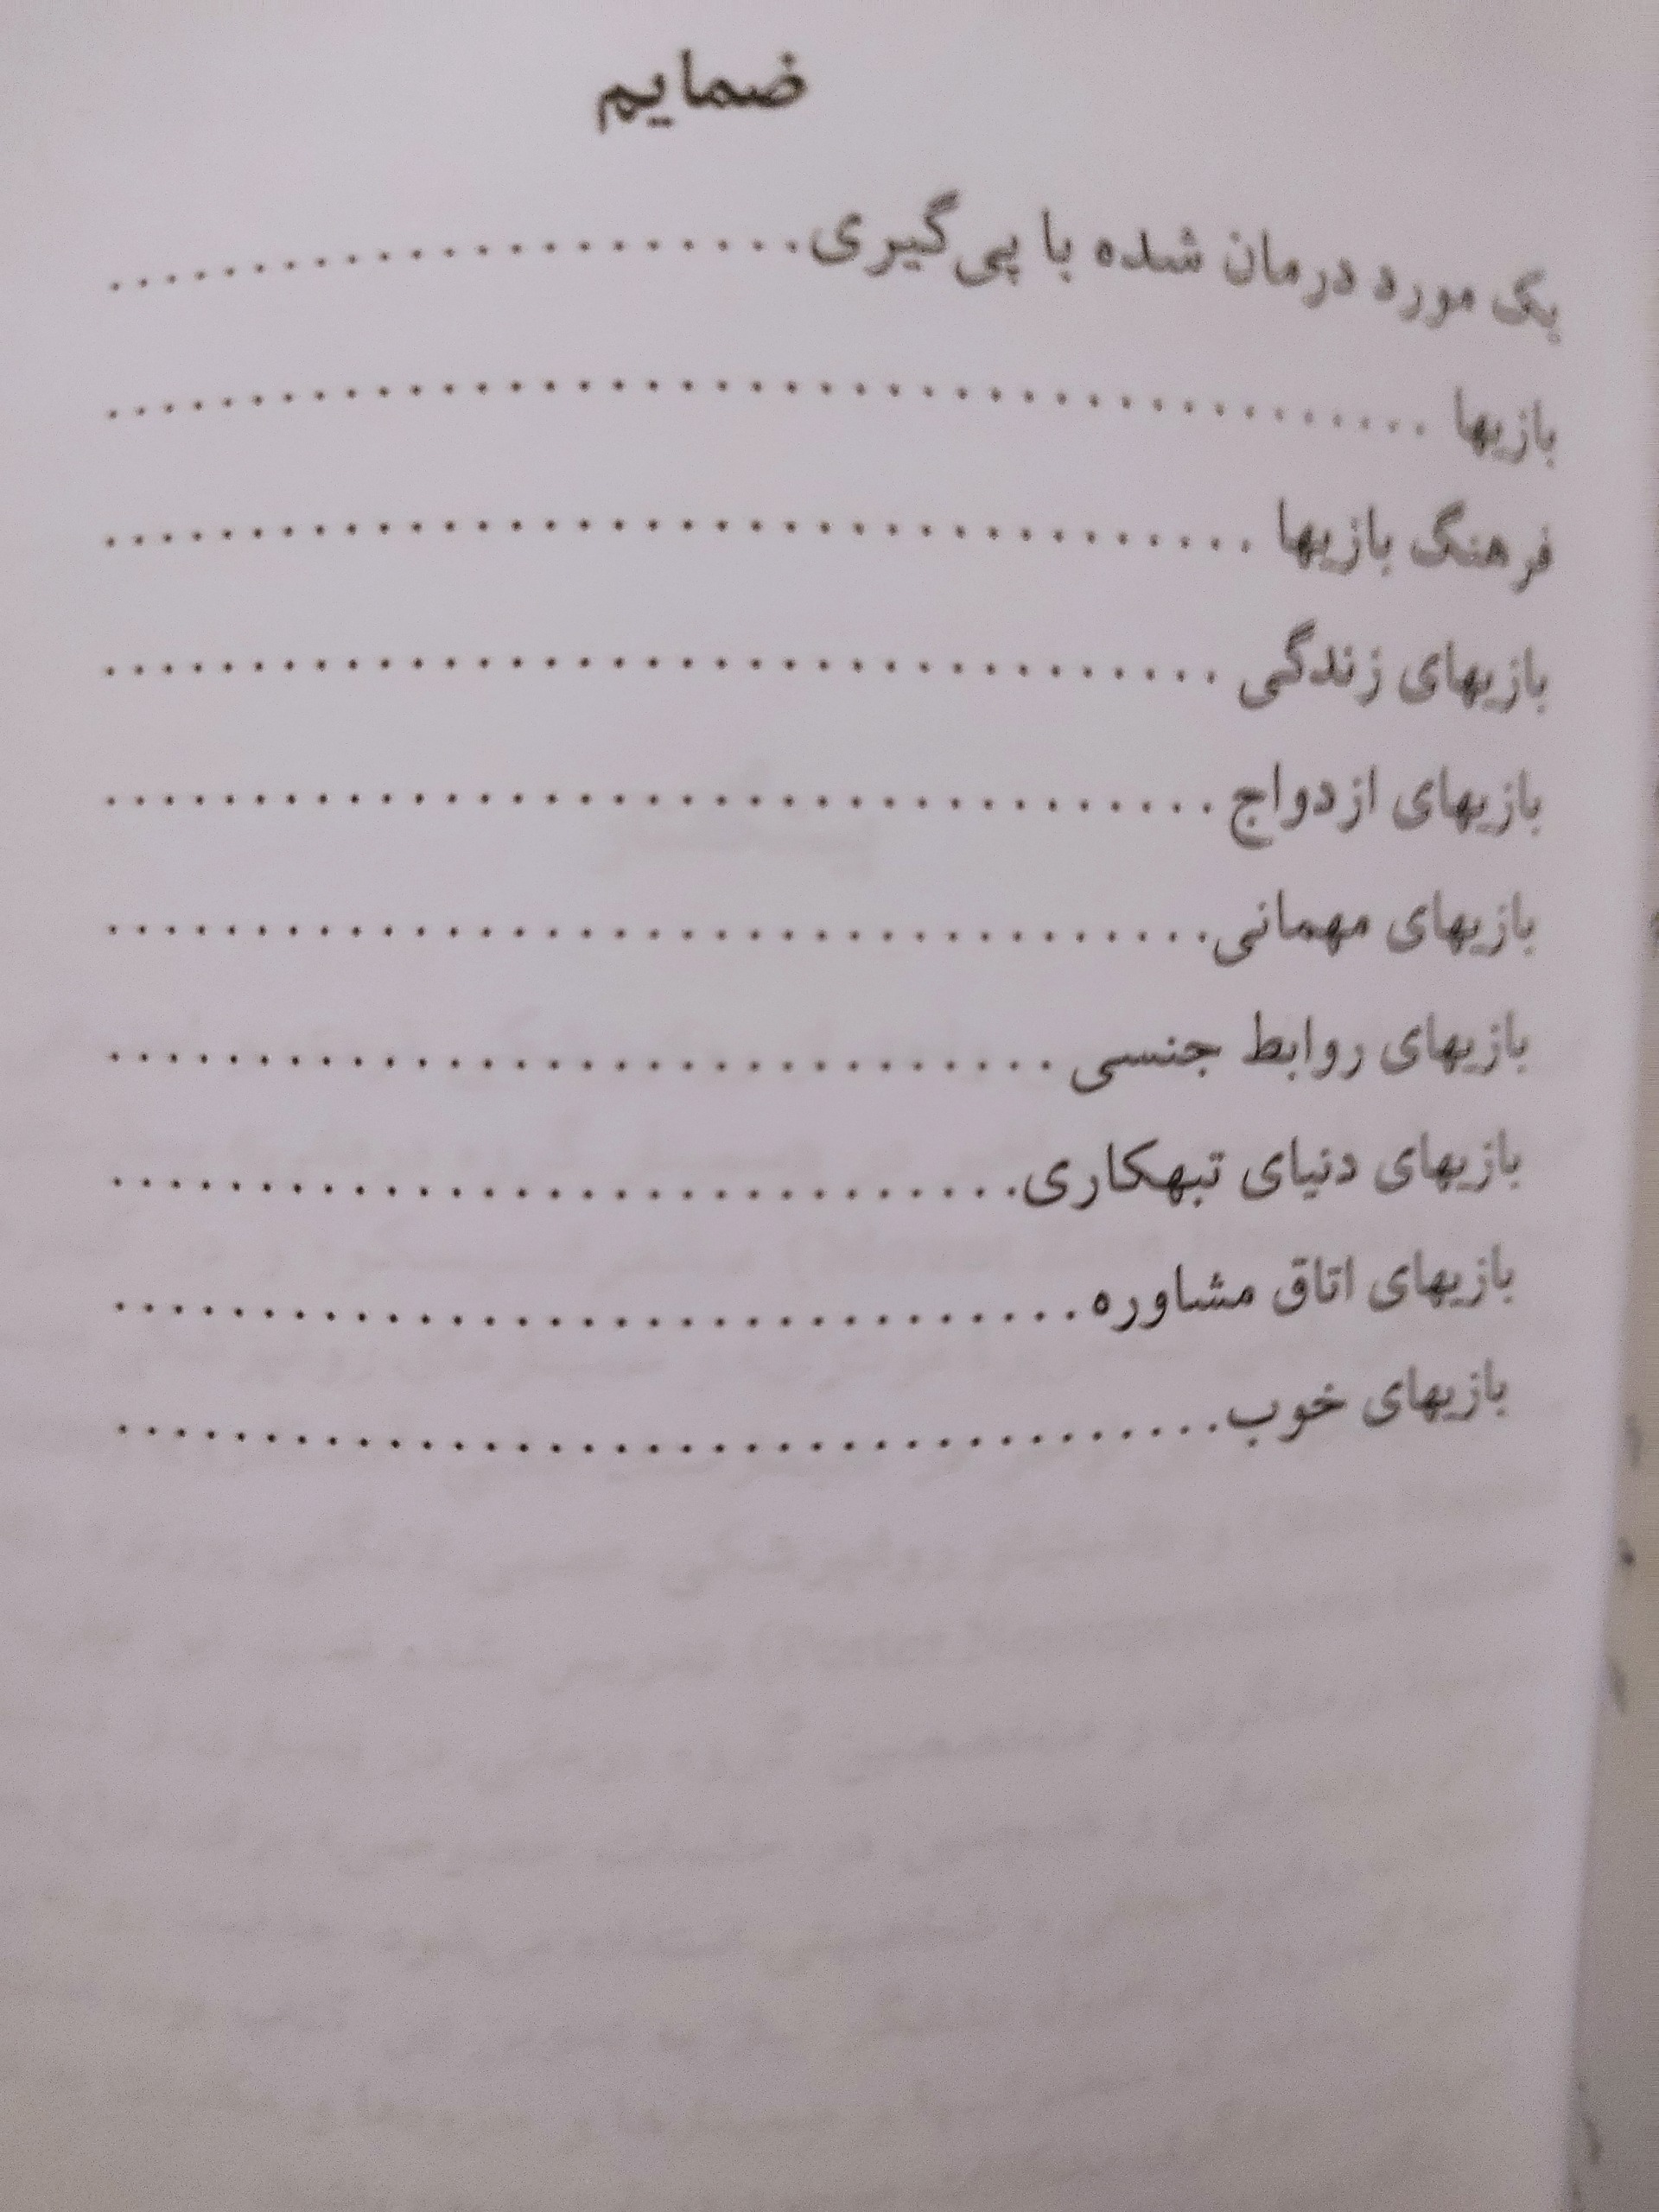 ضمایم
یک مورد درمان شده با پی‌گیری....................
بازیها ........................................
فرهنگ بازیها ...................................
بازیهای زندگی ..................................
بازیهای ازدواج ..................................
بازیهای مهمانی..................................
بازیهای روابط جنسی .............................
بازیهای دنیای تبهکاری............................
بازیهای اتاق مشاوره..............................
بازیهای خوب..................................